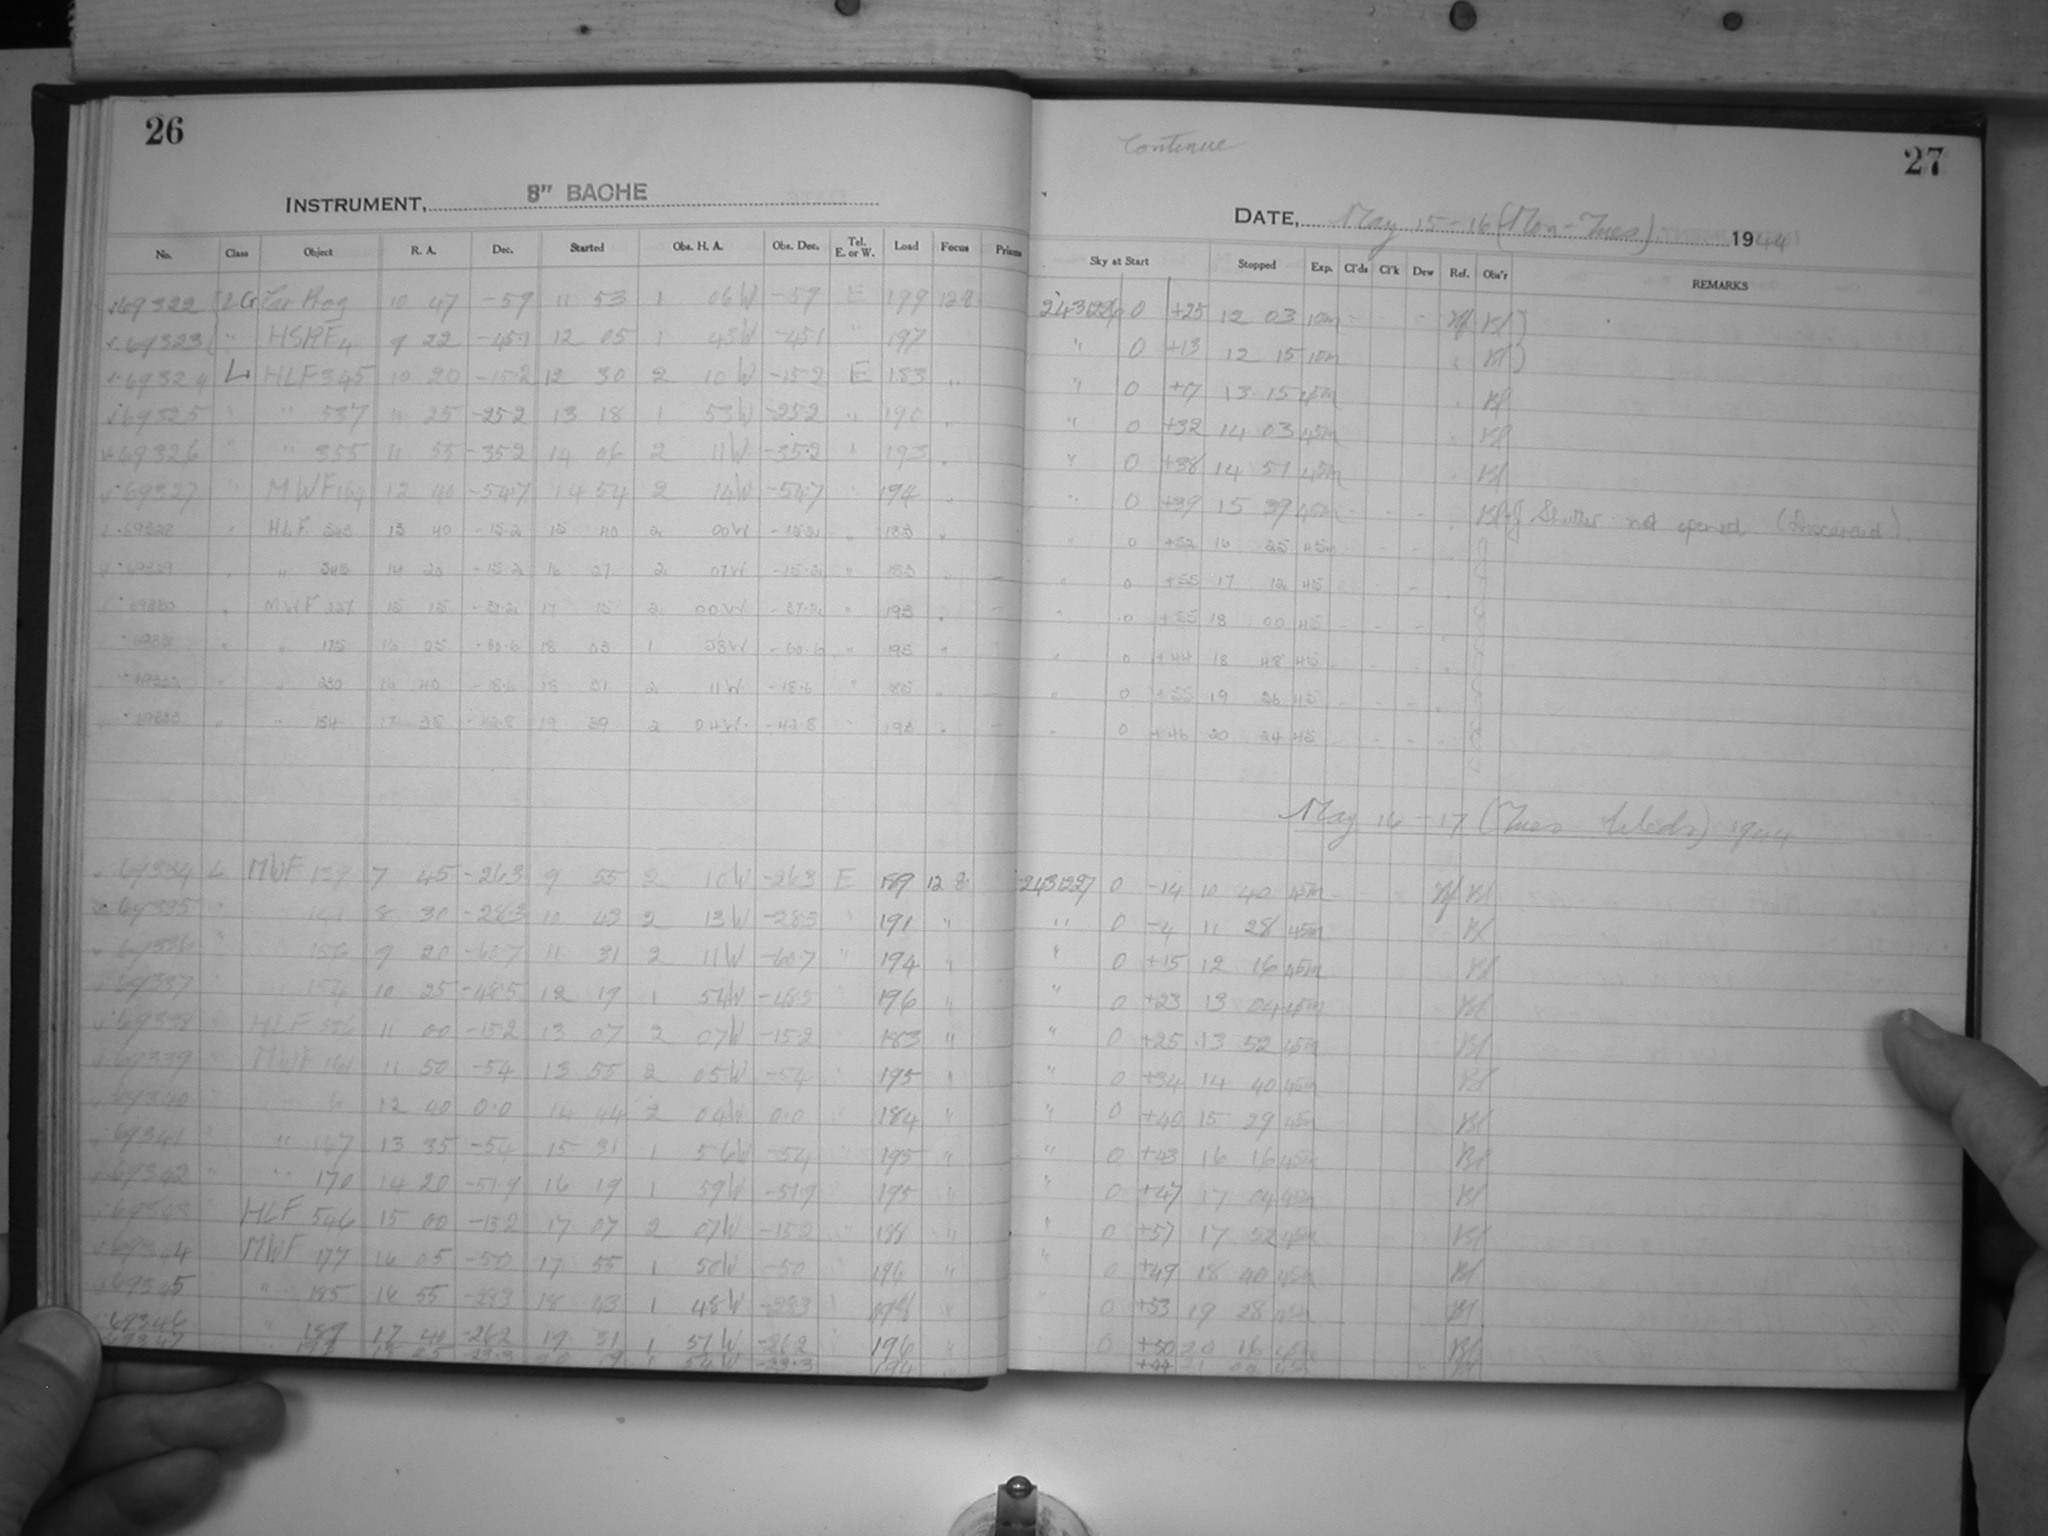 26
INSTRUMENT, 8" BACHE
No. Class Object R. A. Dec. Started Obs. H. A. Obs. Dec. Tel. E. or W. Load Focus Prisms
69322 LG Car Prog 10 47 -59 11 53 1 06W -59 E 199 12.8
69323 " HSPE4 9 22 -45.1 12 05 1 43W -45.1 " 197
69324 L HLF 345 10 20 -15.2 12 30 2 10W -15.2 E 183 "
69325 " " 537 11 25 -25.2 13 18 1 53W -25.2 " 190 "
69326 " " 355 11 55 -35.2 14 06 2 11W -35.2 " 193 "
69327 " MWF 164 12 40 -54.7 14 54 2 14W -54.7 " 194 "
69328 " HLF 13 40 -15.2 15 40 2 00W -15.2 " 183 "
69329 " " 14 20 -15.2 16 27 2 07W -15.2 " 183 "
69330 " MWF 227 15 15 17 15 2 00W " 193 "
69331 " " 175 16 05 -60.6 18 03 1 58W -60.6 " 195 "
69332 " " 230 16 40 -18.6 18 51 2 11W -18.6 " 185 "
69333 " " 184 17 35 -42.8 19 39 2 04W -42.8 " 195 "
69334 L MWF 139 7 45 -26.3 9 55 2 10W -26.3 E 189 12.8
69335 " 8 30 -28.3 10 43 2 13W -28.3 " 191 "
69336 " 156 9 20 -60.7 11 31 2 11W -60.7 " 194 "
69337 154 10 25 -48.5 12 19 1 54W -48.5 196 "
69338 HLF 336 11 00 -15.2 13 07 2 07W -15.2 183 "
69339 MWF 161 11 50 -54 13 55 2 05W -54 195 "
69340 " 6 12 40 0.0 14 44 2 04W 0.0 184 "
69341 " 167 13 35 -54 15 31 1 56W -54 195 "
69342 " 170 14 20 -51.9 16 19 1 59W -51.9 195 "
69343 HLF 546 15 00 -15.2 17 07 2 07W -15.2 188 "
69344 MWF 177 16 05 -50 17 55 1 50W -50 196 "
69345 " 185 16 55 -28.3 18 43 1 48W -28.3 198 "
69346 " 189 17 40 -26.2 19 31 1 51W -26.2 196 "
69347 " 25 -29.3 20 19 1 54W -29.3 194 "
Continue
27
DATE, May 15-16 (Mon-Tues) 1944
Sky at Start Stopped Exp. Cl'ds Cl'k Dew Ref. Obs'r REMARKS
2431226 0 +25 12 03 10m Bl
" 0 +13 12 15 10m Bl
" 0 +17 13 15 45m Bl
" 0 +32 14 03 45m Bl
" 0 +38 14 51 45m Bl
" 0 +39 15 39 45m Bl+J Shutter not opened (Discarded).
" 0 +52 16 25 45m J
" 0 +55 17 12 45 J
" 0 +55 18 00 45 J
" 0 +44 18 48 45 J
" 0 +55 19 36 45 J
" 0 +46 20 24 45 J
May 16-17 (Tues Weds) 1944
2431227 0 -14 10 40 45m Bl
" 0 -4 11 28 45m Bl
" 0 +15 12 16 45m Bl
" 0 +23 13 04 45m Bl
" 0 +25 13 52 45m Bl
" 0 +34 14 40 45m Bl
" 0 +40 15 29 45m Bl
" 0 +43 16 16 45m Bl
" 0 +47 17 04 45m Bl
" 0 +57 17 52 45m Bl
" 0 +49 18 40 45m Bl
" 0 +53 19 28 45m Bl
0 +50 20 16 45m Bl
+44 21 04 45m Bl